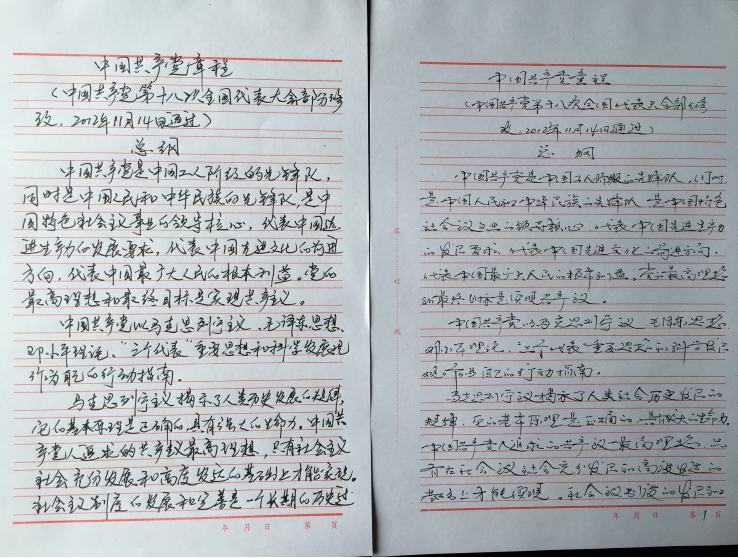 中国共产党章程
（中国共产党第十八次全国代表大会部分修
改，2012年11月14日通过）
总纲
中国共产党是中国工人阶级的先锋队，
同时是中国人民和中华民族的先锋队，是中
国特色社会主义事业的领导核心，代表中国先
进生产力的发展要求，代表中国先进文化的前进
方向，代表中国最广大人民的根本利益。党的
最高理想和最终目标是实现共产主义。
中国共产党以马克思列宁主义、毛泽东思想、
邓小平理论、“三个代表”重要思想和科学发展观
作为自己的行动指南。
马克思列宁主义揭示了人类历史发展的规律，
它的基本原理是正确的，具有强大的生命力。中国共
产党人追求的共产主义最高理想，只有社会主义
社会充分发展和高度发达的基础上才能实现。
社会主义制度的发展和完善是一个长期的历史过
年 月 日 第 页
中国共产党章程
（中国共产党第十八次全国代表大会部分修
改，2012年11月14日通过）
总纲
中国共产党是中国工人阶级的先锋队，同时
是中国人民和中华民族的先锋队，是中国特色
社会主义事业的领导核心，代表中国先进生产力
的发展要求，代表中国先进文化的前进方向，
代表中国最广大人民的根本利益。党的最高理想
和最终目标是实现共产主义。
中国共产党以马克思列宁主义、毛泽东思想、
邓小平理论、“三个代表”重要思想和科学发展
观作为自己的行动指南。
马克思列宁主义揭示了人类社会历史发展的
规律，它的基本原理是正确的，具有强大的生命力。
中国共产党人追求的共产主义最高理想，只
有在社会主义社会充分发展和高度发达的
基础上才能实现。社会主义制度的发展和
装 订 线
年 月 日 第 1 页